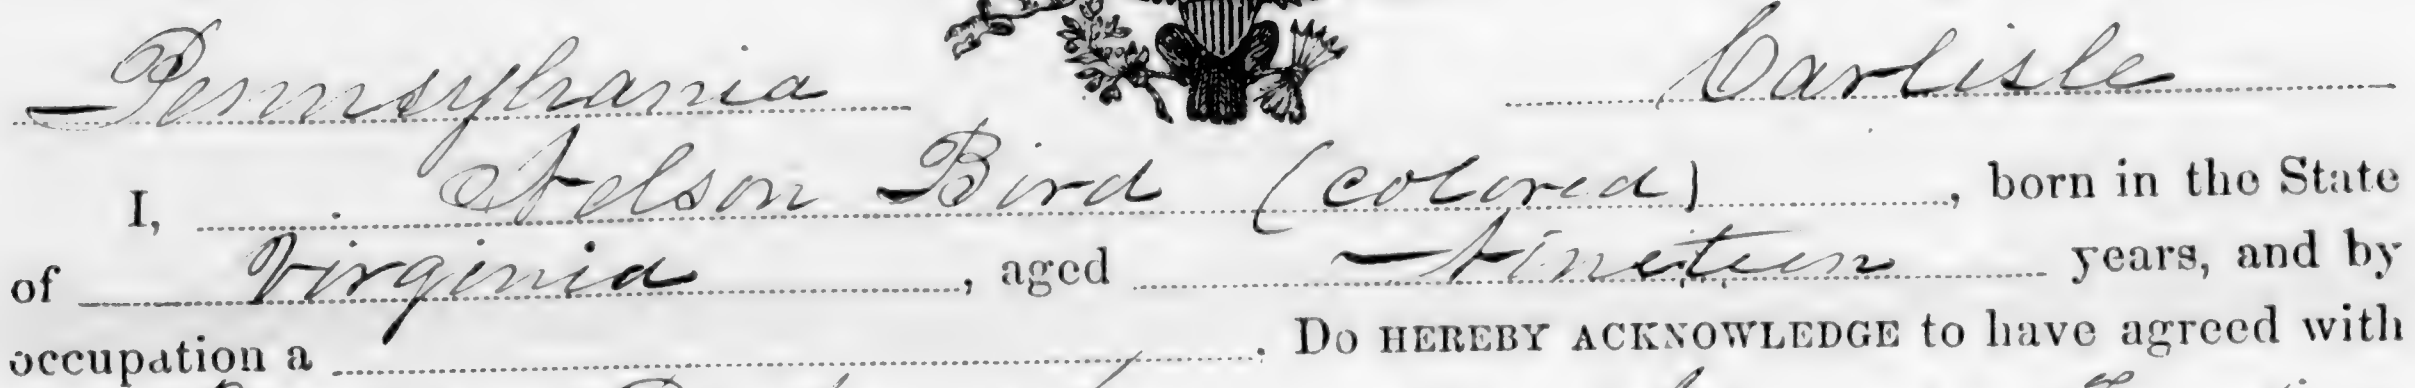 Pennsylvania Carlisle
I, Nelson Bird (colored), born in the State
of Virginia, aged Nineteen years, and by
occupation a . Do HEREBY ACKNOWLEDGE to have agreed with